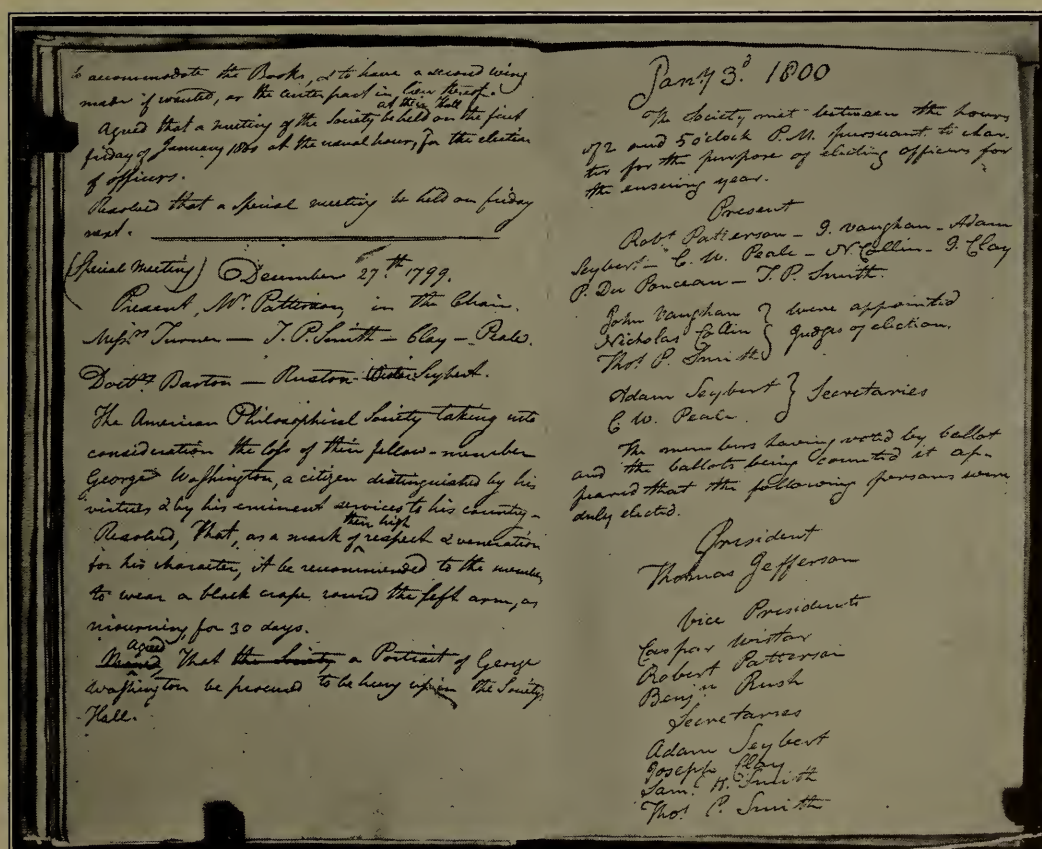 to accommodate the Books, & to have a second wing
made if wanted, or the center part in lieu thereof.
at their Hall
Agreed that a meeting of the Society be held on the first
friday of January 1800 at the usual hours, for the election
of officers.
Resolved that a special meeting be held on friday
next.
(Special Meeting) December 27.th 1799.
Present, Mr. Patterson, in the Chair.
Messrs Turner — T. P. Smith — Clay — Peale.
Doctrs Barton — Ruston — Wistar Seybert.
The American Philosophical Society taking into
consideration the loss of their fellow-member
George Washington, a citizen distinguished by his
virtues & by his eminent services to his country—
their high
Resolved, That, as a mark of respect & veneration
for his character, it be recommended to the members
to wear a black crape round the left arm, as
mourning, for 30 days.
Agreed
Moved, That the Society a Portrait of George
Washington be procured to be hung up in the Society's
Hall.
Jany 3.d 1800
The Society met between the hours
of 2 and 5 o'clock P.M. pursuant to char-
ter for the purpose of electing officers for
the ensuing year.
Present
Robt Patterson — J. Vaughan — Adam
Seybert — C. W. Peale — N. Collin — J. Clay
P. Du Ponceau — T. P. Smith.
John Vaughan } were appointed
Nicholas Collin } Judges of election.
Thos P. Smith
Adam Seybert } Secretaries
C. W. Peale.
The members having voted by ballot
and the ballots being counted it ap-
peared that the following persons were
duly elected.
President
Thomas Jefferson
Vice Presidents
Caspar Wistar
Robert Patterson
Benjn Rush
Secretaries
Adam Seybert
Joseph Clay
Saml H. Smith
Thos P. Smith